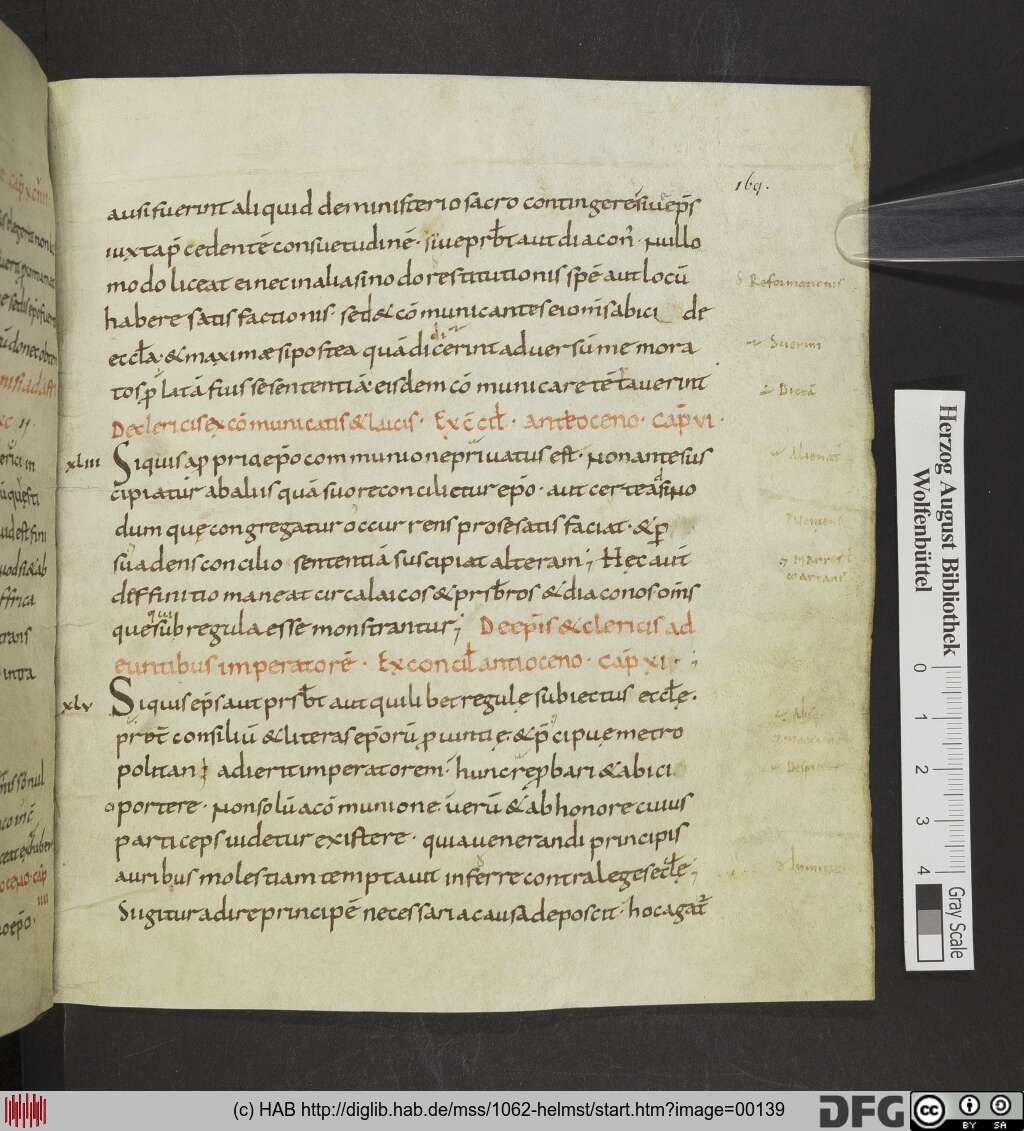 169.
ausi fuerint aliquid de ministerio sacro contingere siue ep̄s
iuxta p̄cedentē consuetudinē· siue prb̄t aut diacon̄· Nullo
modo liceat ei nec in alia sinodo restitutionis spē aut locū
habere satisfactionis· sed & cōmunicantes ei omīs abici de
eccl̄a· & maximæ si postea quā didicerint aduersū memora
tos p̄latā fuisse sententiā eisdem cōmunicare tētauerint
De clericis excōmunicatis & laicis· Ex c̄cil̄· antioceno· Cap̄ VI·
xliii Siquis a p̄prio ep̄o communione priuatus est· Non ante sus
cipiatur ab aliis quā suo reconcilietur ep̄o· aut certe ad sino
dum quę congregatur occurrens pro se satisfaciat· & p̄
suadens concilio sententiā suscipiat alteram; Hęc aut̄
deffinitio maneat circa laicos & prsb̄ros & diaconos om̄s
que qui sub regula esse monstrantur; De ep̄is & clericis ad
euntibus imperatorē· Ex concil̄ antioceno· Cap̄ XI·;
xlv Siquis ep̄s aut prsb̄t aut quilibet regulę subiectus eccl̄ę·
p̄t̄ consiliū & literas ep̄orū p̄uintię· & p̄cipuę metro
politani adierit imperatorem· hunc rep̄bari & abici
oportere· Non solū a cōmunione uerū & ab honore cuius
particeps uidetur existere· quia uenerandi principis
auribus molestiam temptauit inferre contra leges eccl̄ę;
Si igitur adire principē necessaria causa deposcit· hoc agat̄
Reformationis
Suerin
Dictā
Alienat
cap xcuii
Herzog August Bibliothek
Wolfenbüttel
0 1 2 3 4
Gray Scale
(c) HAB http://diglib.hab.de/mss/1062-helmst/start.htm?image=00139
DFG
cc BY SA